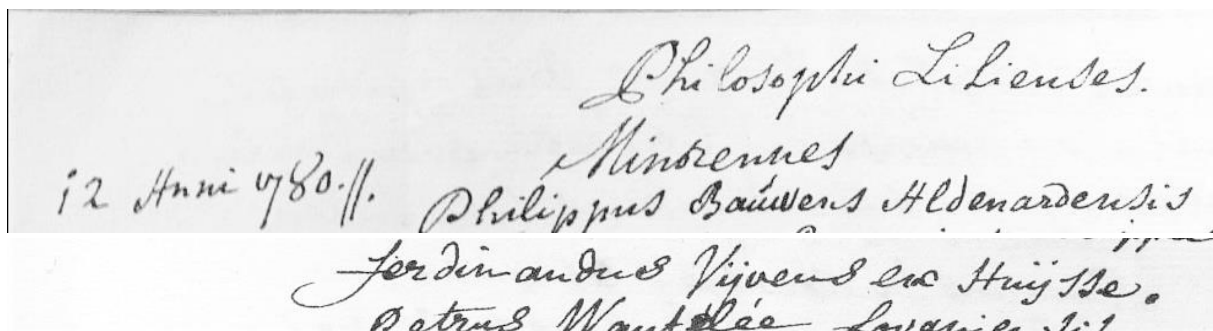 Philosophi Lilienses.
Minorennes
12 Anni 1780.//. Philippus Bauwens Aldenardensis
Ferdinandus Vijvens ex Huijsse.
Petrus